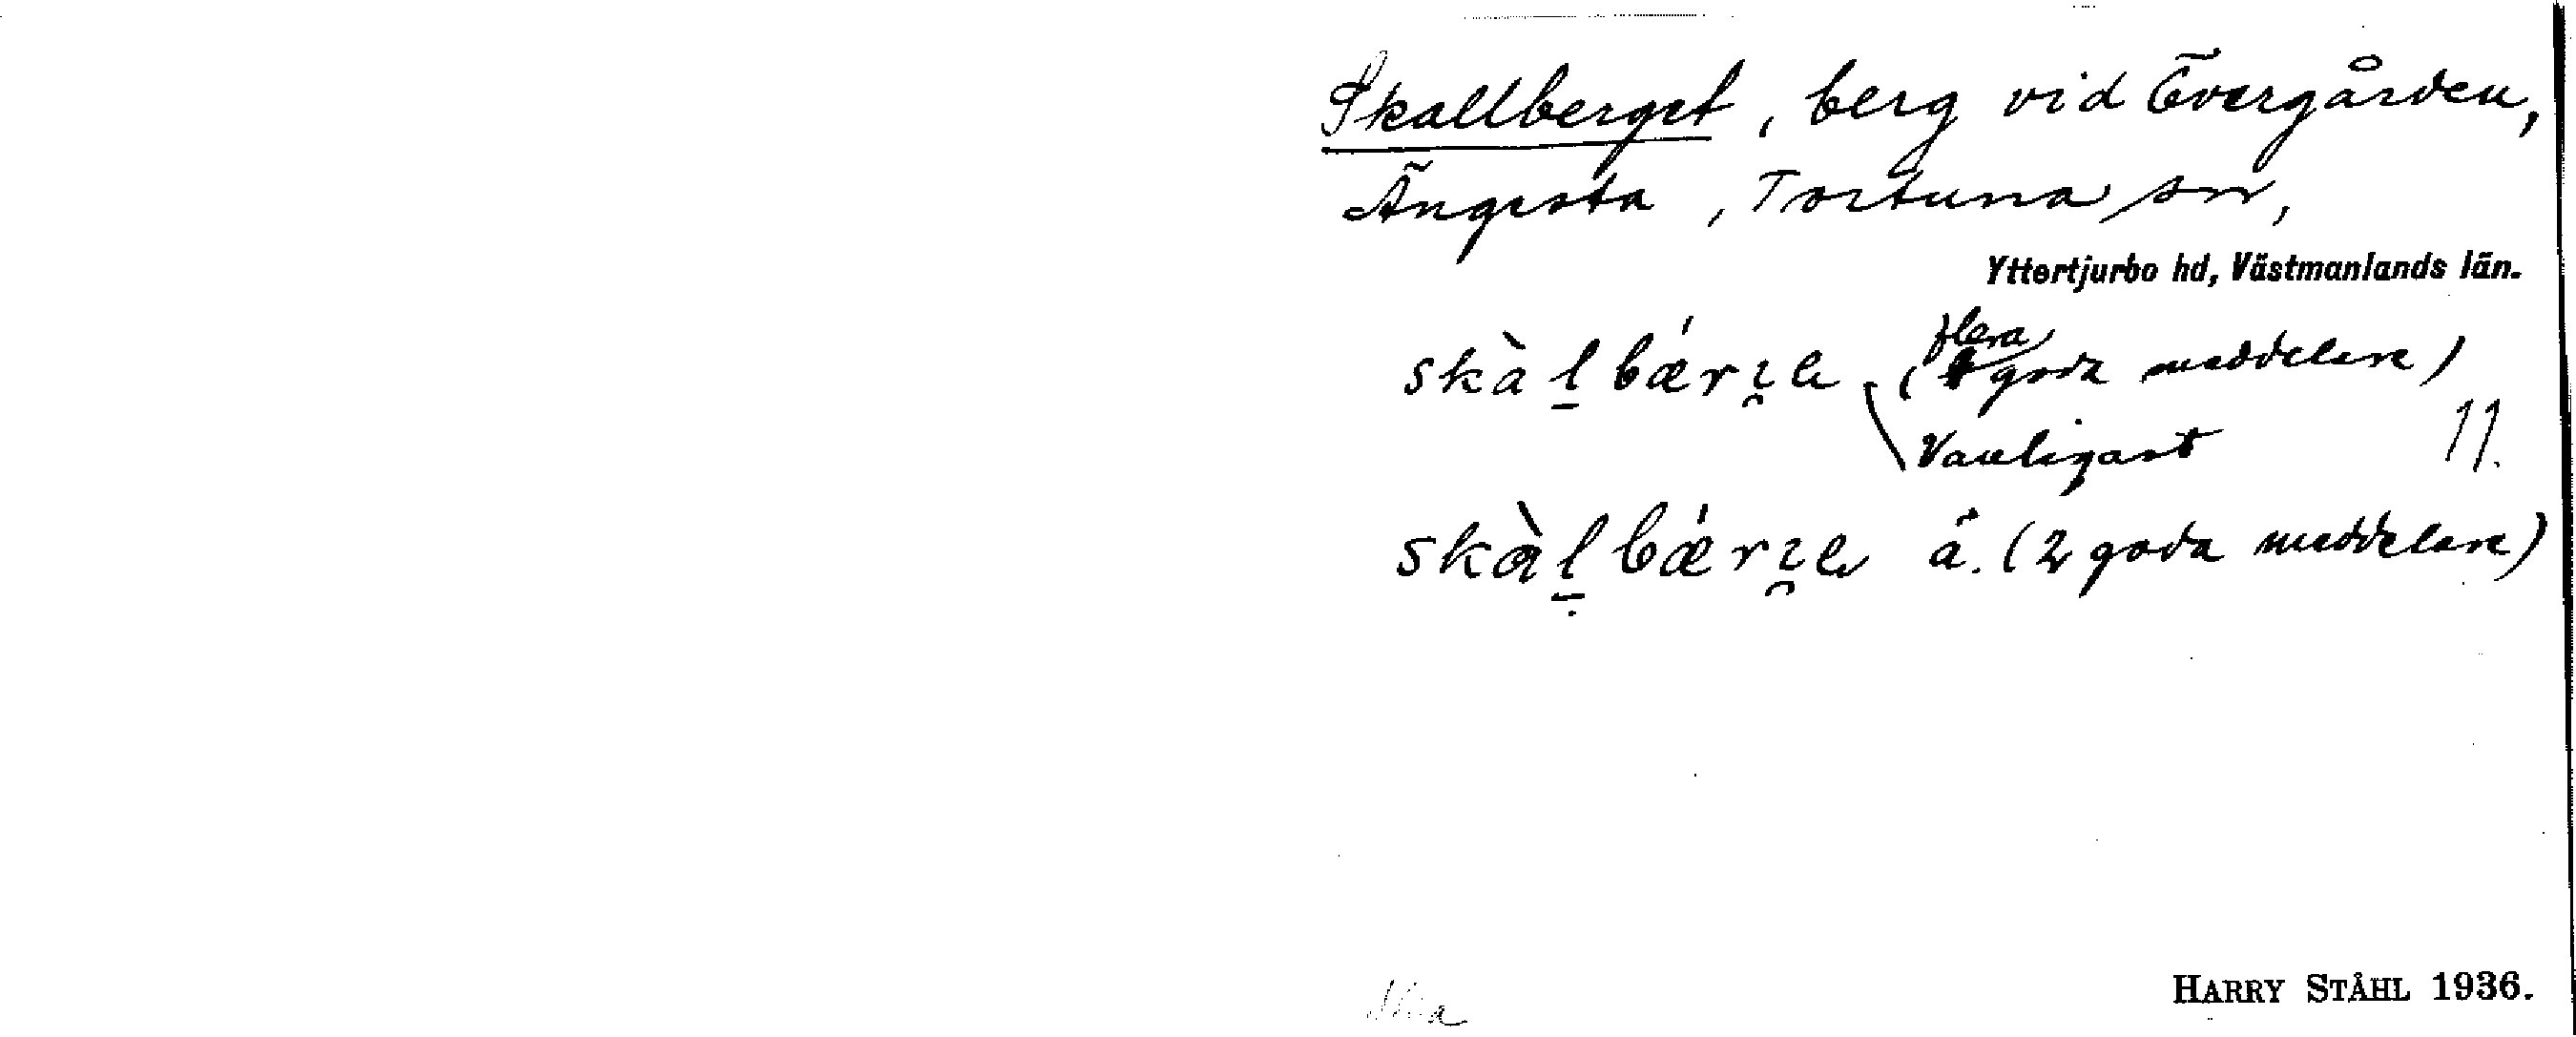 Skallberget, berg vid Övergården,
Ängesta, Tortuna sn,
Yttertjurbo hd, Västmanlands län.
skàl̠bǽrɿ̯e (flera goda meddelare)
Vanligast 11.
skàḻ̣bǽrɿ̯e ä. (2 goda meddelare)
HARRY STÅHL 1936.